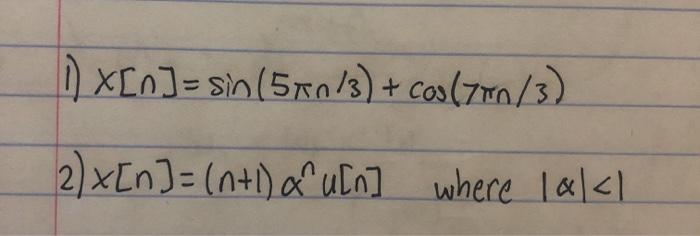 1) x[n] = sin(5πn/3) + cos(7πn/3)
2) x[n] = (n+1) αⁿ u[n] where |α|<1